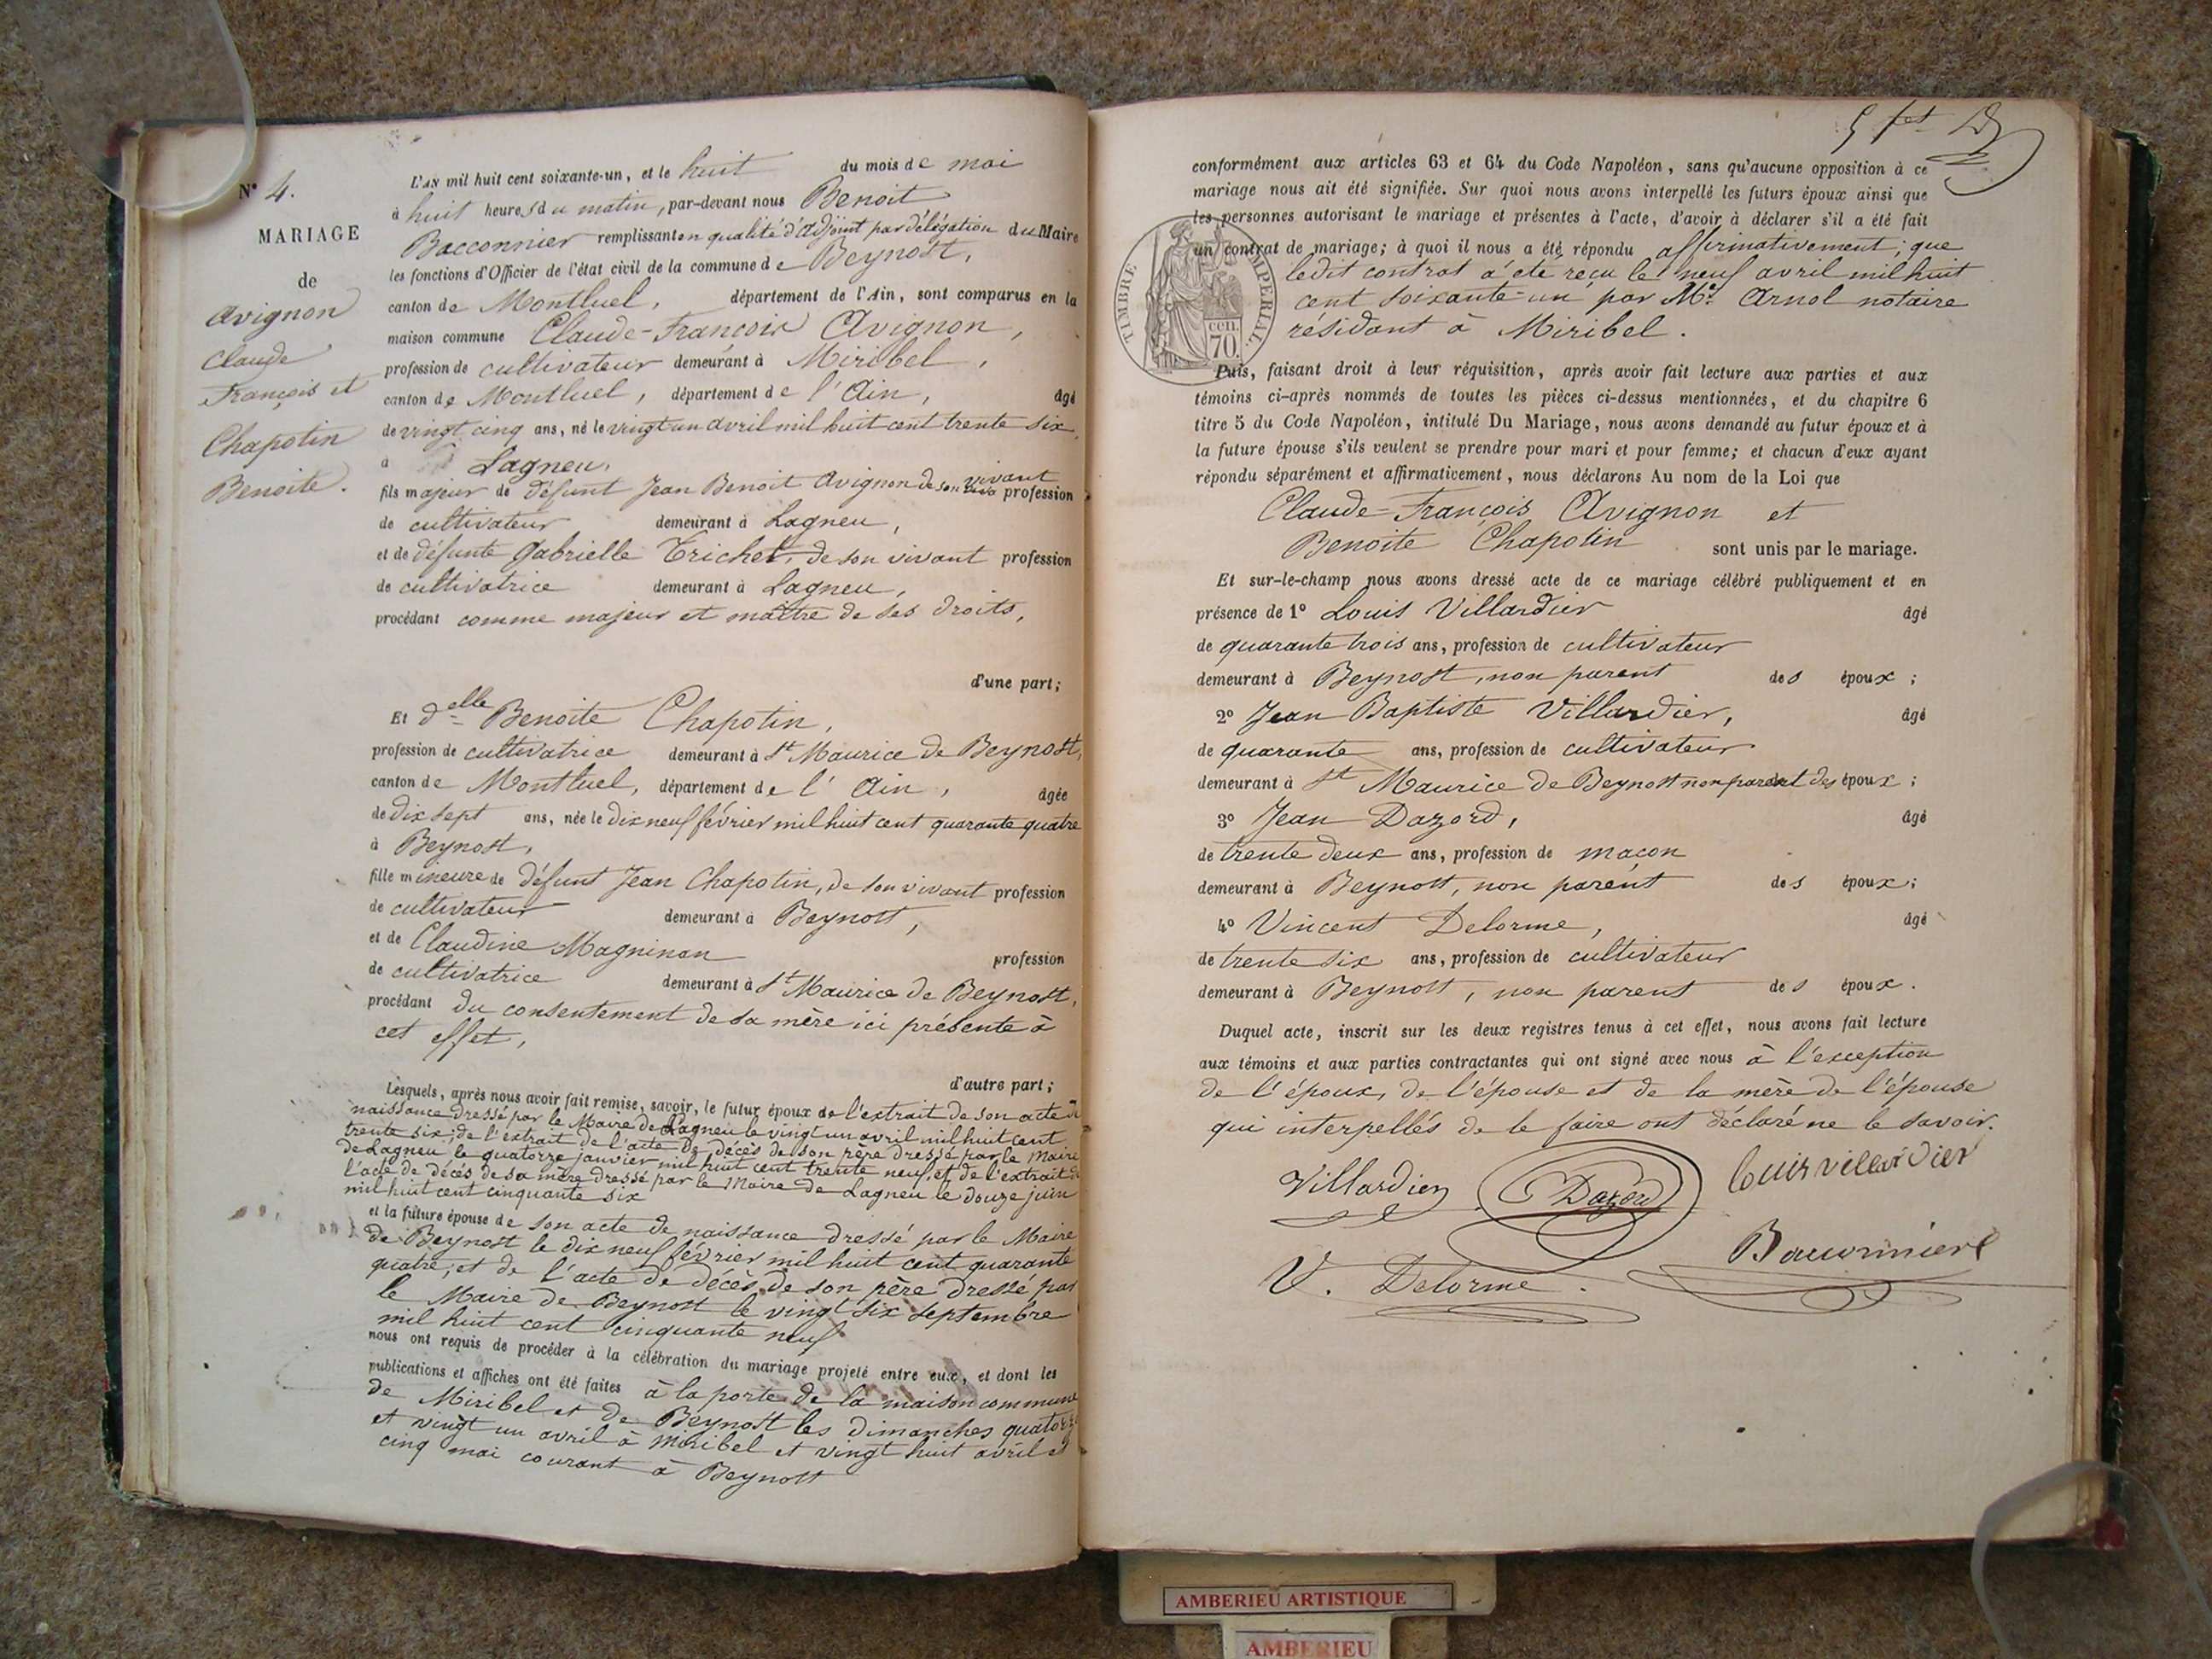 N° 4.
MARIAGE
de
Avignon
Claude
François et
Chapotin
Benoite.
L'AN mil huit cent soixante-un, et le huit du mois de mai
à huit heures du matin, par-devant nous Benoit
Bacconnier remplissant en qualité d'adjoint par délégation du Maire
les fonctions d'Officier de l'état civil de la commune de Beynost,
canton de Montluel, département de l'Ain, sont comparus en la
maison commune Claude-François Avignon,
profession de cultivateur demeurant à Miribel,
canton de Montluel, département de l'Ain, âgé
de vingt cinq ans, né le vingt un avril mil huit cent trente six,
à Lagneu,
fils majeur de défunt Jean Benoit Avignon de son vivant profession
de cultivateur demeurant à Lagneu,
et de défunte Gabrielle Trichet, de son vivant profession
de cultivatrice demeurant à Lagneu,
procédant comme majeur et maître de ses droits,
d'une part;
Et delle Benoite Chapotin,
profession de cultivatrice demeurant à St Maurice de Beynost,
canton de Montluel, département de l'Ain, âgée
de dix sept ans, née le dix neuf février mil huit cent quarante quatre
à Beynost,
fille mineure de défunt Jean Chapotin, de son vivant profession
de cultivateur demeurant à Beynost,
et de Claudine Magninan profession
de cultivatrice demeurant à St Maurice de Beynost,
procédant du consentement de sa mère ici présente à
cet effet,
d'autre part;
Lesquels, après nous avoir fait remise, savoir, le futur époux de l'extrait de son acte de
naissance dressé par le Maire de Lagneu le vingt un avril mil huit cent
trente six; de l'extrait de l'acte de décès de son père dressé par le Maire
de Lagneu le quatorze janvier mil huit cent trente neuf, et de l'extrait de
l'acte de décès de sa mère dressé par le Maire de Lagneu le douze juin
mil huit cent cinquante six
et la future épouse de son acte de naissance dressé par le Maire
de Beynost le dix neuf février mil huit cent quarante
quatre; et de l'acte de décès de son père dressé par
le Maire de Beynost le vingt six septembre
mil huit cent cinquante neuf
nous ont requis de procéder à la célébration du mariage projeté entre eux, et dont les
publications et affiches ont été faites à la porte de la maison commune
de Miribel et de Beynost les dimanches quatorze
et vingt un avril à Miribel et vingt huit avril et
cinq mai courant à Beynost
conformément aux articles 63 et 64 du Code Napoléon, sans qu'aucune opposition à ce
mariage nous ait été signifiée. Sur quoi nous avons interpellé les futurs époux ainsi que
les personnes autorisant le mariage et présentes à l'acte, d'avoir à déclarer s'il a été fait
un contrat de mariage; à quoi il nous a été répondu affirmativement; que
ledit contrat a été reçu le neuf avril mil huit
cent soixante-un par Me. Arnol notaire
résidant à Miribel.
TIMBRE IMPERIAL
cen.
70.
Puis, faisant droit à leur réquisition, après avoir fait lecture aux parties et aux
témoins ci-après nommés de toutes les pièces ci-dessus mentionnées, et du chapitre 6
titre 5 du Code Napoléon, intitulé Du Mariage, nous avons demandé au futur époux et à
la future épouse s'ils veulent se prendre pour mari et pour femme; et chacun d'eux ayant
répondu séparément et affirmativement, nous déclarons Au nom de la Loi que
Claude-François Avignon et
Benoite Chapotin sont unis par le mariage.
Et sur-le-champ nous avons dressé acte de ce mariage célébré publiquement et en
présence de 1° Louis Villardier âgé
de quarante trois ans, profession de cultivateur
demeurant à Beynost, non parent des époux;
2° Jean Baptiste Villardier, âgé
de quarante ans, profession de cultivateur
demeurant à St Maurice de Beynost non parent des époux;
3° Jean Dazord, âgé
de trente deux ans, profession de maçon
demeurant à Beynost, non parent des époux;
4° Vincent Delorme, âgé
de trente six ans, profession de cultivateur
demeurant à Beynost, non parent des époux.
Duquel acte, inscrit sur les deux registres tenus à cet effet, nous avons fait lecture
aux témoins et aux parties contractantes qui ont signé avec nous à l'exception
de l'époux, de l'épouse et de la mère de l'épouse
qui interpellés de le faire ont déclaré ne le savoir.
Villardier Dazord Louis villardier
V. Delorme. Bacconnier
AMBERIEU ARTISTIQUE
AMBERIEU